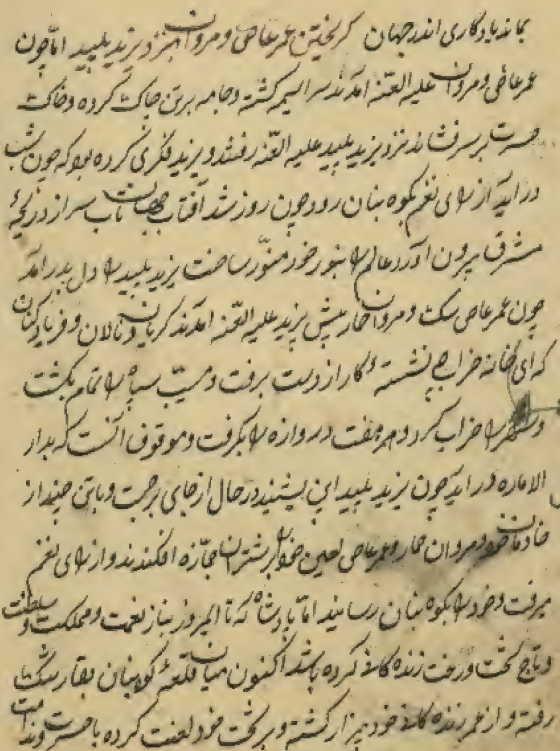 بماند یادگاری اندر جهان گریختن عمر عاص و مروان بنزد یزید پلید اما چون
عمر عاص و مروان علیه العنه آمدند سراسیمه گشته و جامه بر تن چاک کرده و خاک
حسرت بر سر فشاند نزد یزید پلید علیه العنه رفتند و یزید فکری کرده بود که چون شب
در آید از برای نغم بکوه بنان رود چون روز شد آفتاب جهان تاب سر از دریچهٔ
مشرق بیرون آورد عالم را بنور خود منور ساخت یزید پلید را دل بدر آمد
چون عمر عاص سگ و مروان حمار پیش یزید علیه العنه آمدند گریان و نالان و فریاد کنان
که ای خانه خراب چه نشسته که کار از دست برفت و مسیب سپاه را تمام بکشت
و را خراب کرد و هر هفت دروازه را بگرفت و موقوف آنست که بدار
الاماره در آید چون یزید پلید این بشنید در حال از جای برجست و با تنی چند از
خادمان خود و مروان حمار و عمر عاص لعین خود را بر شتران جمازه افکندند و از برای نغم
میرفت و خود را بکوه بنان رسانید اما پادشاه که تا امروز بناز نعمت و مملکت و سلطنت
و تاج تخت و رخت زنده کانی کرده باشد اکنون میان قلعهٔ کوه بنان بغار سگ
رفته و از عمر زنده کانی خود بیزار گشته و بر بخت خود لعنت کرده با حسرت و ندامت